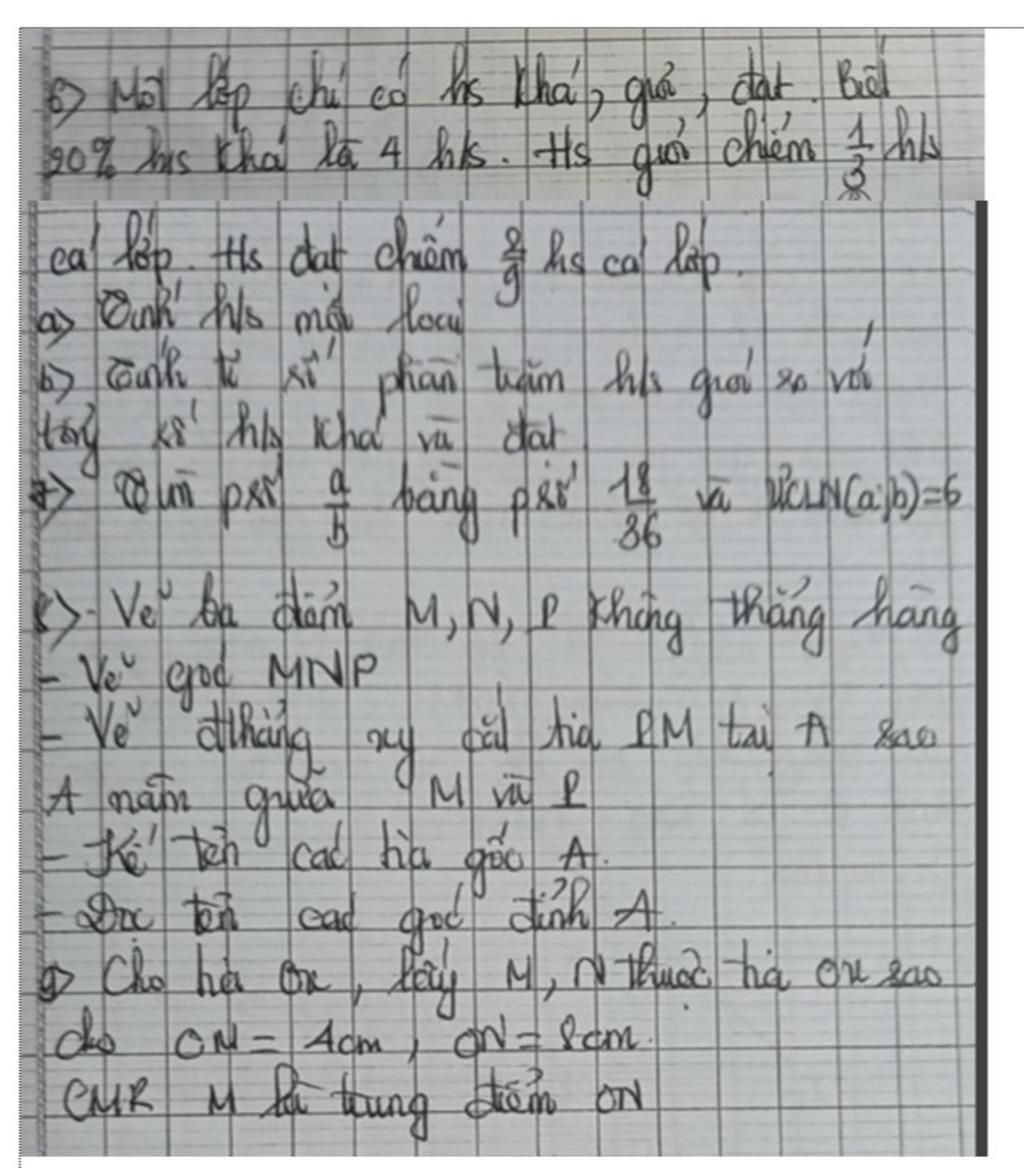 6) Một lớp chỉ có hs khá, giỏi, đạt. Biết
20% hs khá là 4 h/s. Hs giỏi chiếm 1/3 h/s
cả lớp. Hs đạt chiếm 2/9 hs cả lớp.
a) Tính h/s mỗi loại
b) Tính tỉ số phần trăm h/s giỏi so với
tổng số h/s khá và đạt
7) Tìm psố a/b bằng psố 18/36 và ƯCLN(a;b)=6
8) - Vẽ ba điểm M, N, P không thẳng hàng
- Vẽ góc MNP
- Vẽ đthẳng xy cắt tia PM tại A sao
A nằm giữa M và P
- Kể tên các tia gốc A.
- Đọc tên các góc đỉnh A.
9) Cho tia Ox, lấy M, N thuộc tia Ox sao
cho OM = 4cm, ON = 8cm.
CMR M là trung điểm ON